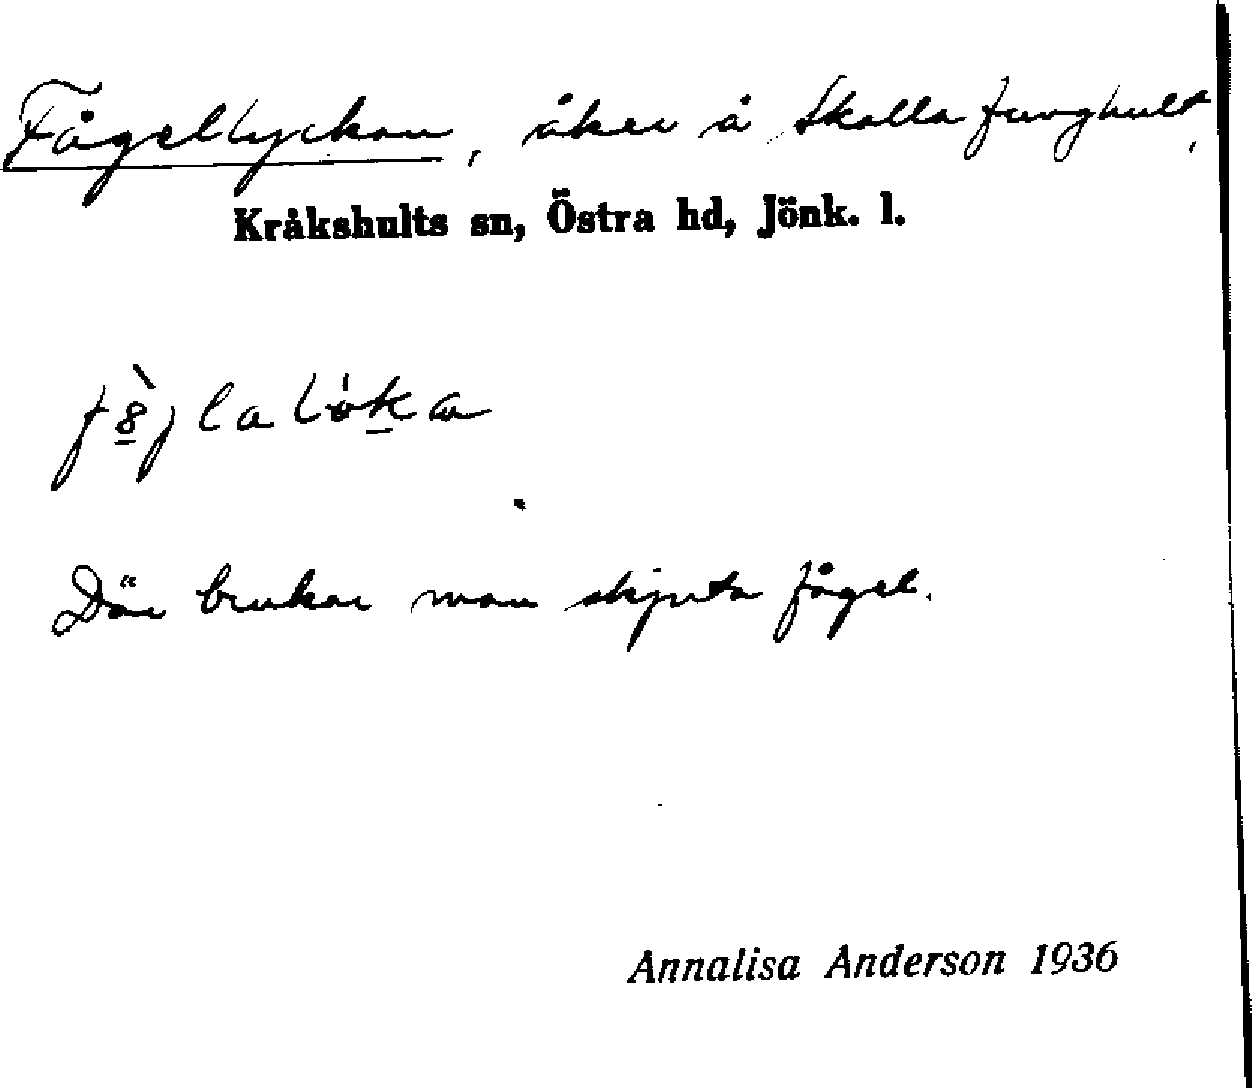 Fågellyckan, åker å Skallafurghult,
Kråkshults sn, Östra hd, Jönk. l.
Där brukar man skjuta fågel.
Annalisa Anderson 1936